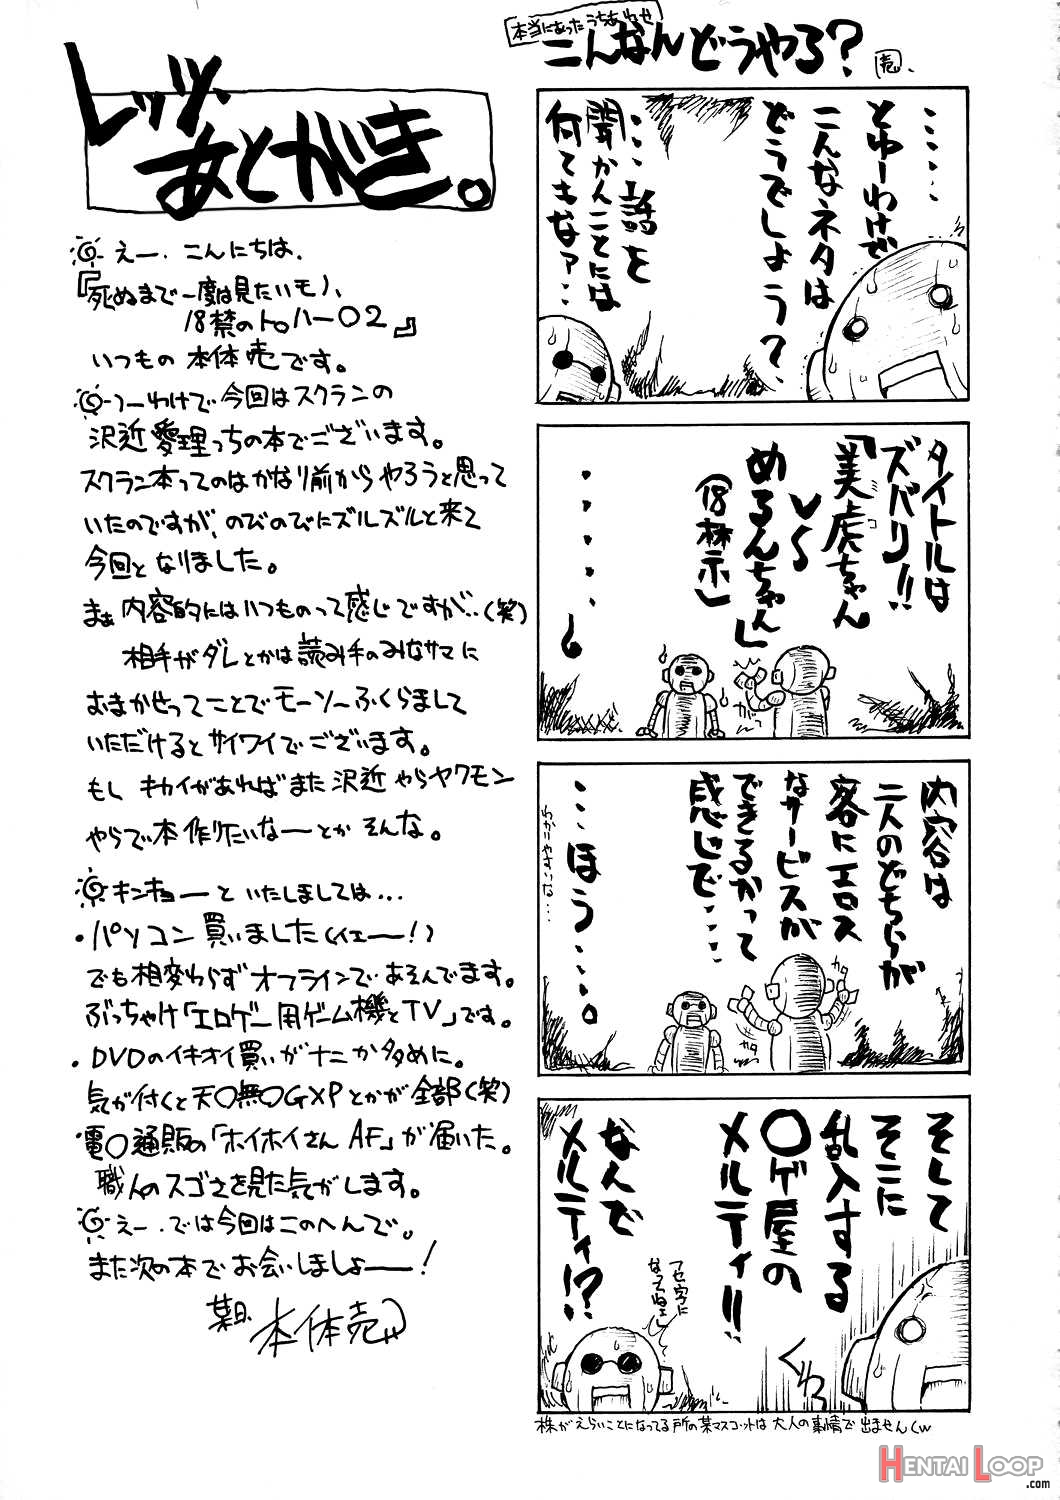 レッツ、
あとがき。
えー、こんにちは、
『死ぬまで一度は見たいモノ、
18禁のトゥハー02』
いつもの 本体売です。
つーわけで今回はスクランの
沢近愛理っちの本でございます。
スクラン本ってのはかなり前からやろうと思って
いたのですが、のびのびにズルズルと来て
今回となりました。
まぁ 内容的にはいつものって感じですが‥(笑)
相手がダレとかは読み手のみなサマに
おまかせってことでモーソーふくらまして
いただけるとサイワイでございます。
もし キカイがあればまた沢近やらヤクモン
やらで本作りたいなーとか そんな。
キンキョーといたしましては…
・パソコン買いました(イェー!)
でも相変わらずオフラインであそんでます。
ぶっちゃけ「エロゲー用ゲーム機とTV」です。
・DVDのイキオイ買いがナニか多めに。
気が付くと天〇無〇GXPとかが全部(笑)
電〇通販の「ホイホイさん AF」が届いた。
職人のスゴさを見た気がします。
えー、では今回はこのへんで。
また次の本でお会いしましょー!
葉月 本体売
本当にあったうちあわせ
こんなんどうやろ?
売.
‥‥‥
とゆーわけで
こんなネタは
どうでしょう?
‥‥話を
聞かんことには
何てもなァ…
タイトルは
ズバリ!!
「美虎ちゃん
コ
VS
めるんちゃん」
(18禁)
・・・・・・
ガッ
内容は
二人のどちらが
客にエロス
なサービスが
できるかって
感じで‥‥
‥‥ほう‥‥。
わかりやすいな…
カタ
カタ
そして
そこに
乱入する
〇ゲ屋の
メルティ!!
なんで
メルティ!?
フセ字に
なってねェ
ぐわっ
株がえらいことになってる所の某マスコットは大人の事情で出ませんくw
HENTAI LOOP
.com